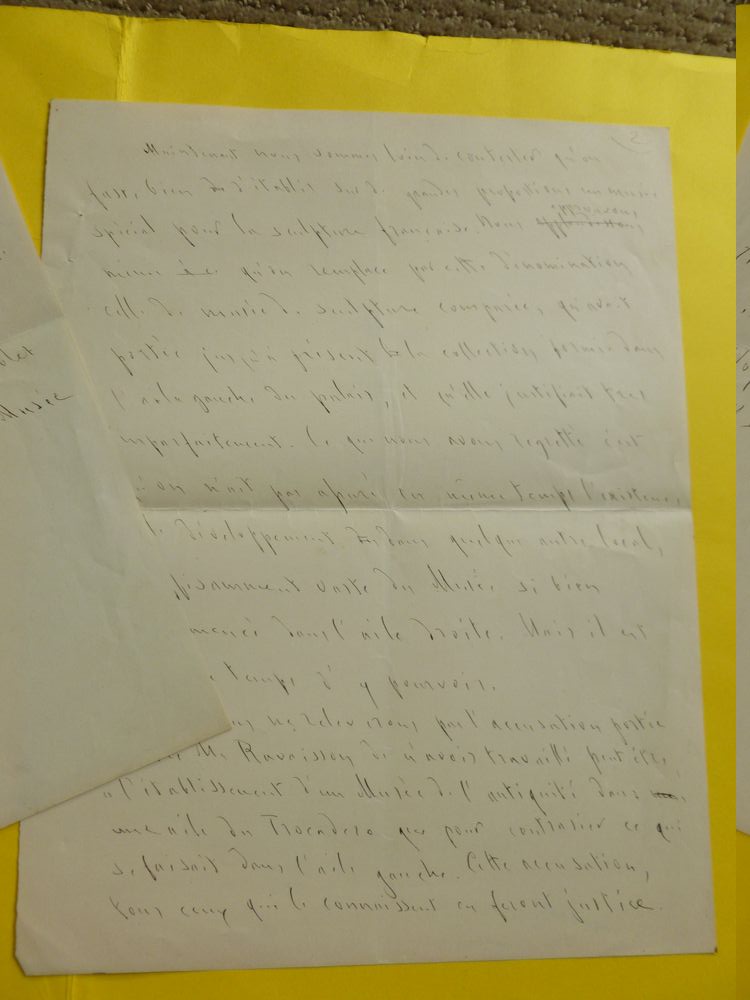 5
Maintenant nous sommes loin de contester qu'on
fasse bien d'établir sur de grandes proportions un musée
spécial pour la sculpture française. Nous
approuvons
même qu'on remplace par cette dénomination
celle de musée de sculpture comparée, qu'avait
portée jusqu'à présent la collection formée dans
l'aile gauche du palais, et qu'elle justifiait très
imparfaitement. Ce que nous avons regretté c'est
qu'on n'ait pas assuré en même temps l'existence
développement dans quelque autre local,
vaste du Musée si bien
dans l'aile droite. Mais il est
temps d'y pourvoir.
ne relèverons pas l'accusation portée
M. Ravaisson de n'avoir travaillé peut être
à l'établissement d'un Musée de l'antiquité dans
une aile du Trocadero que pour contrarier ce qui
se faisait dans l'aile gauche. Cette accusation,
tous ceux qui le connaissent en feront justice.
Musée